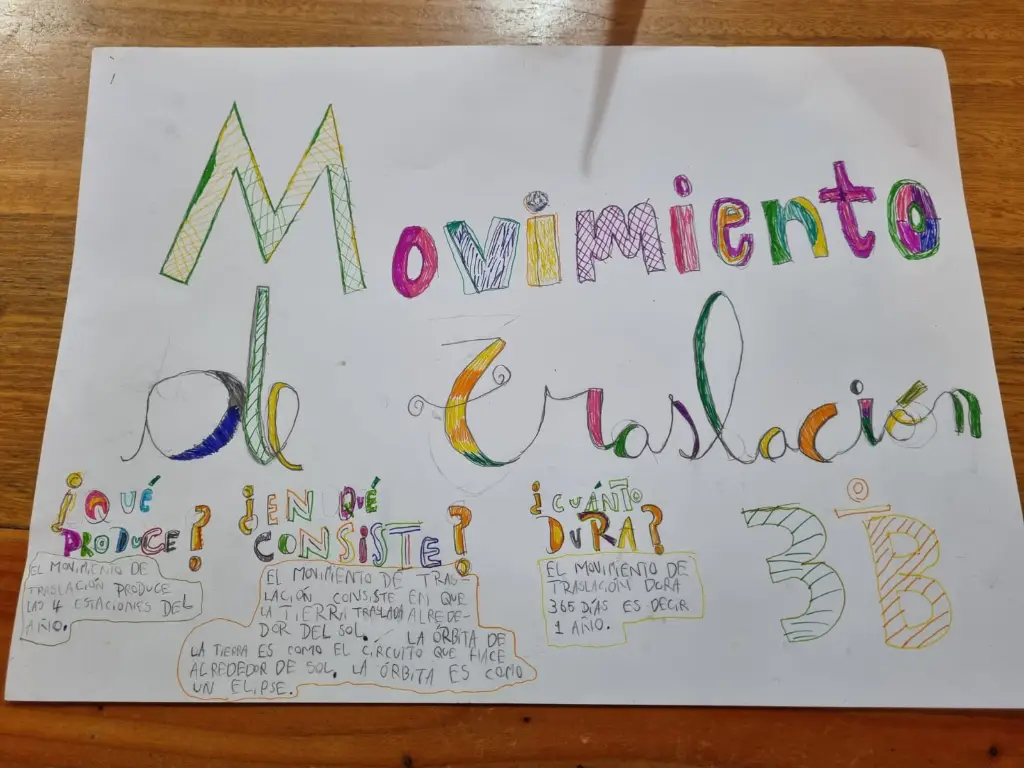 Movimiento
de Traslación
¿QUÉ
PRODUCE?
EL MOVIMIENTO DE
TRASLACIÓN PRODUCE
LAS 4 ESTACIONES DEL
AÑO.
¿EN QUÉ
CONSISTE?
EL MOVIMIENTO DE TRAS-
LACIÓN CONSISTE EN QUE
LA TIERRA TRASLADA ALREDE-
DOR DEL SOL. LA ÓRBITA DE
LA TIERRA ES COMO EL CÍRCUITO QUE HACE
ALREDEDOR DE SOL. LA ÓRBITA ES COMO
UN ELIPSE.
¿CUÁNTO
DURA?
EL MOVIMIENTO DE
TRASLACIÓN DURA
365 DÍAS ES DECIR
1 AÑO.
3º B